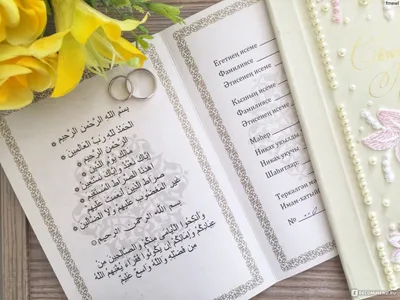 بِسْمِ اللهِ الرَّحْمٰنِ الرَّحِيمِ
الْحَمْدُ لِلّٰهِ رَبِّ الْعَالَمِينَ
الرَّحْمٰنِ الرَّحِيمِ
مَالِكِ يَوْمِ الدِّينِ
إِيَّاكَ نَعْبُدُ وَإِيَّاكَ نَسْتَعِينُ
اهْدِنَا الصِّرَاطَ الْمُسْتَقِيمَ
صِرَاطَ الَّذِينَ أَنْعَمْتَ عَلَيْهِمْ
غَيْرِ الْمَغْضُوبِ عَلَيْهِمْ وَلَا الضَّالِّينَ
بِسْمِ اللهِ الرَّحْمٰنِ الرَّحِيمِ
وَأَنْكِحُوا الْأَيَامَى مِنْكُمْ وَالصَّالِحِينَ مِنْ
عِبَادِكُمْ وَإِمَائِكُمْ إِنْ يَكُونُوا فُقَرَاءَ يُغْنِهِمُ اللهُ
مِنْ فَضْلِهِ وَاللهُ وَاسِعٌ عَلِيمٌ
Егетнең исеме
Фамилиясе
Әтисенең исеме
Кызның исеме
Фамилиясе
Әтисенең исеме
Мәһер
Никах укылды
Никах укучы
Шаһитлар
Теркәлгән
Имам-хатыйб
№
fmewl
RECOMMEND.RU